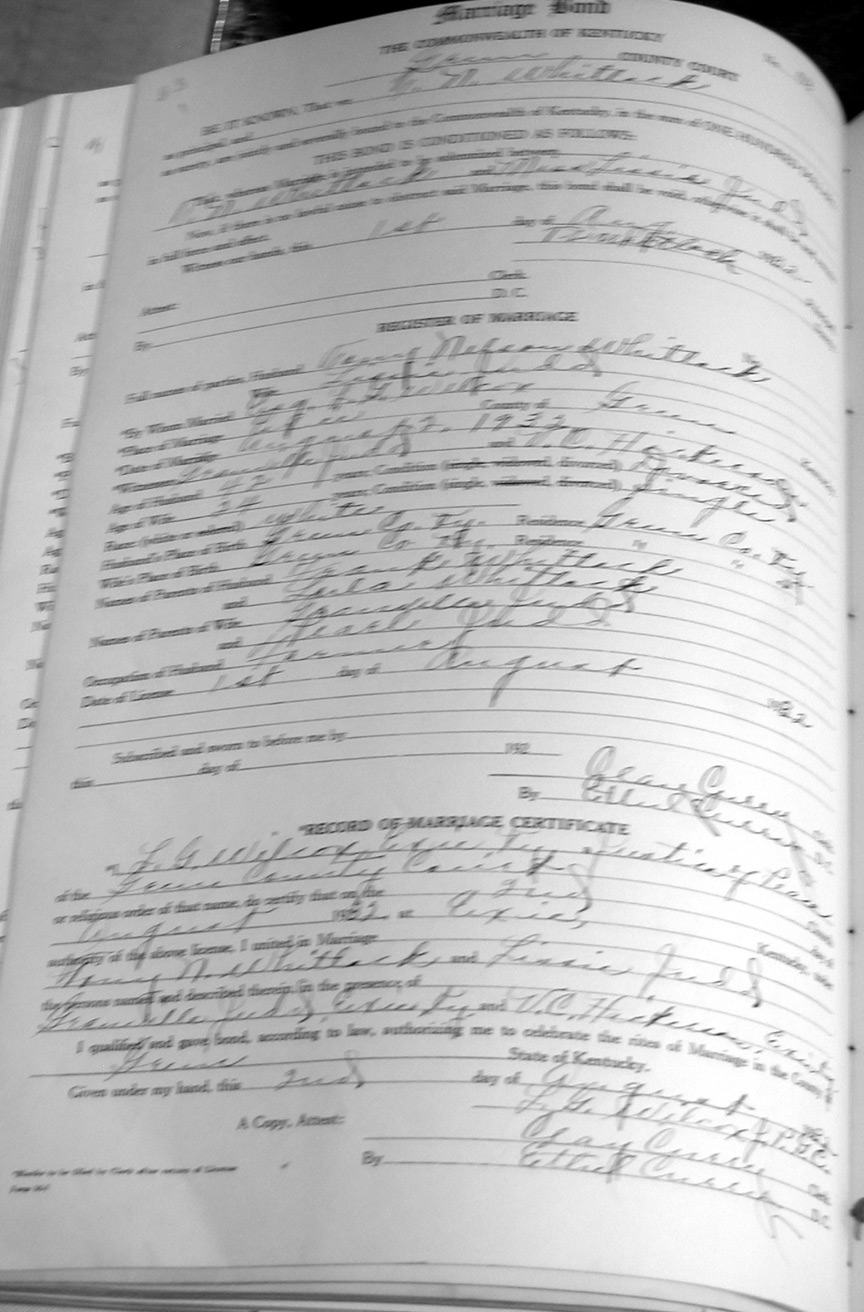 Marriage Bond
THE COMMONWEALTH OF KENTUCKY
Green COUNTY COURT
BE IT KNOWN, That we, Whitlock
as principal, and
as surety, are jointly and severally bound to the Commonwealth of Kentucky, in the sum of ONE HUNDRED
THIS BOND IS CONDITIONED AS FOLLOWS:
That, whereas Marriage is intended to be solemnized between
Whitlock and Miss Lissie Judd
Now, if there is no lawful cause to obstruct said Marriage, this bond shall be void, otherwise it shall
in full force and effect.
Witness our hands, this 1st day of Aug
Whitlock
Attest: Clerk
By D. C.
REGISTER OF MARRIAGE
Full names of parties, Husband Nelson Whitlock
Wife Lissie Judd
*By Whom Married Esq. L. G. Wilcox
*Place of Marriage Exie County of Green
*Date of Marriage August 2, 1932
*Witnesses Granville Judd and V. C. Hickman
Age of Husband 42 years; Condition (single, widowed, divorced) Divorced
Age of Wife 24 years; Condition (single, widowed, divorced) Single
Race (white or colored) White
Husband's Place of Birth Green Co. Ky. Residence Green Co. Ky
Wife's Place of Birth Green Co. Ky. Residence " "
Names of Parents of Husband Frank Whitlock
and Lula Whitlock
Names of Parents of Wife Granville Judd
and Pearl Judd
Occupation of Husband Farmer
Date of License 1st day of August 1932
Subscribed and sworn to before me by
this day of 192
Olay Curry
By Ethel Curry D.C.
*RECORD OF MARRIAGE CERTIFICATE
*I, L. G. Wilcox, Exie Ky. Justice of Peace
of the Green County Court
or religious order of that name, do certify that on the 2nd day of
August 1932, at Exie, Kentucky, under
authority of the above license, I united in Marriage
N. Whitlock and Lissie Judd
the persons named and described therein, in the presence of
Granville Judd, Exie Ky and V. C. Hickman, Exie Ky
I qualified and gave bond, according to law, authorizing me to celebrate the rites of Marriage in the County of
Green State of Kentucky.
Given under my hand, this 2nd day of August
L. G. Wilcox J.P.G.C.
A Copy, Attest: Olay Curry Clerk
By Ethel Curry D.C.